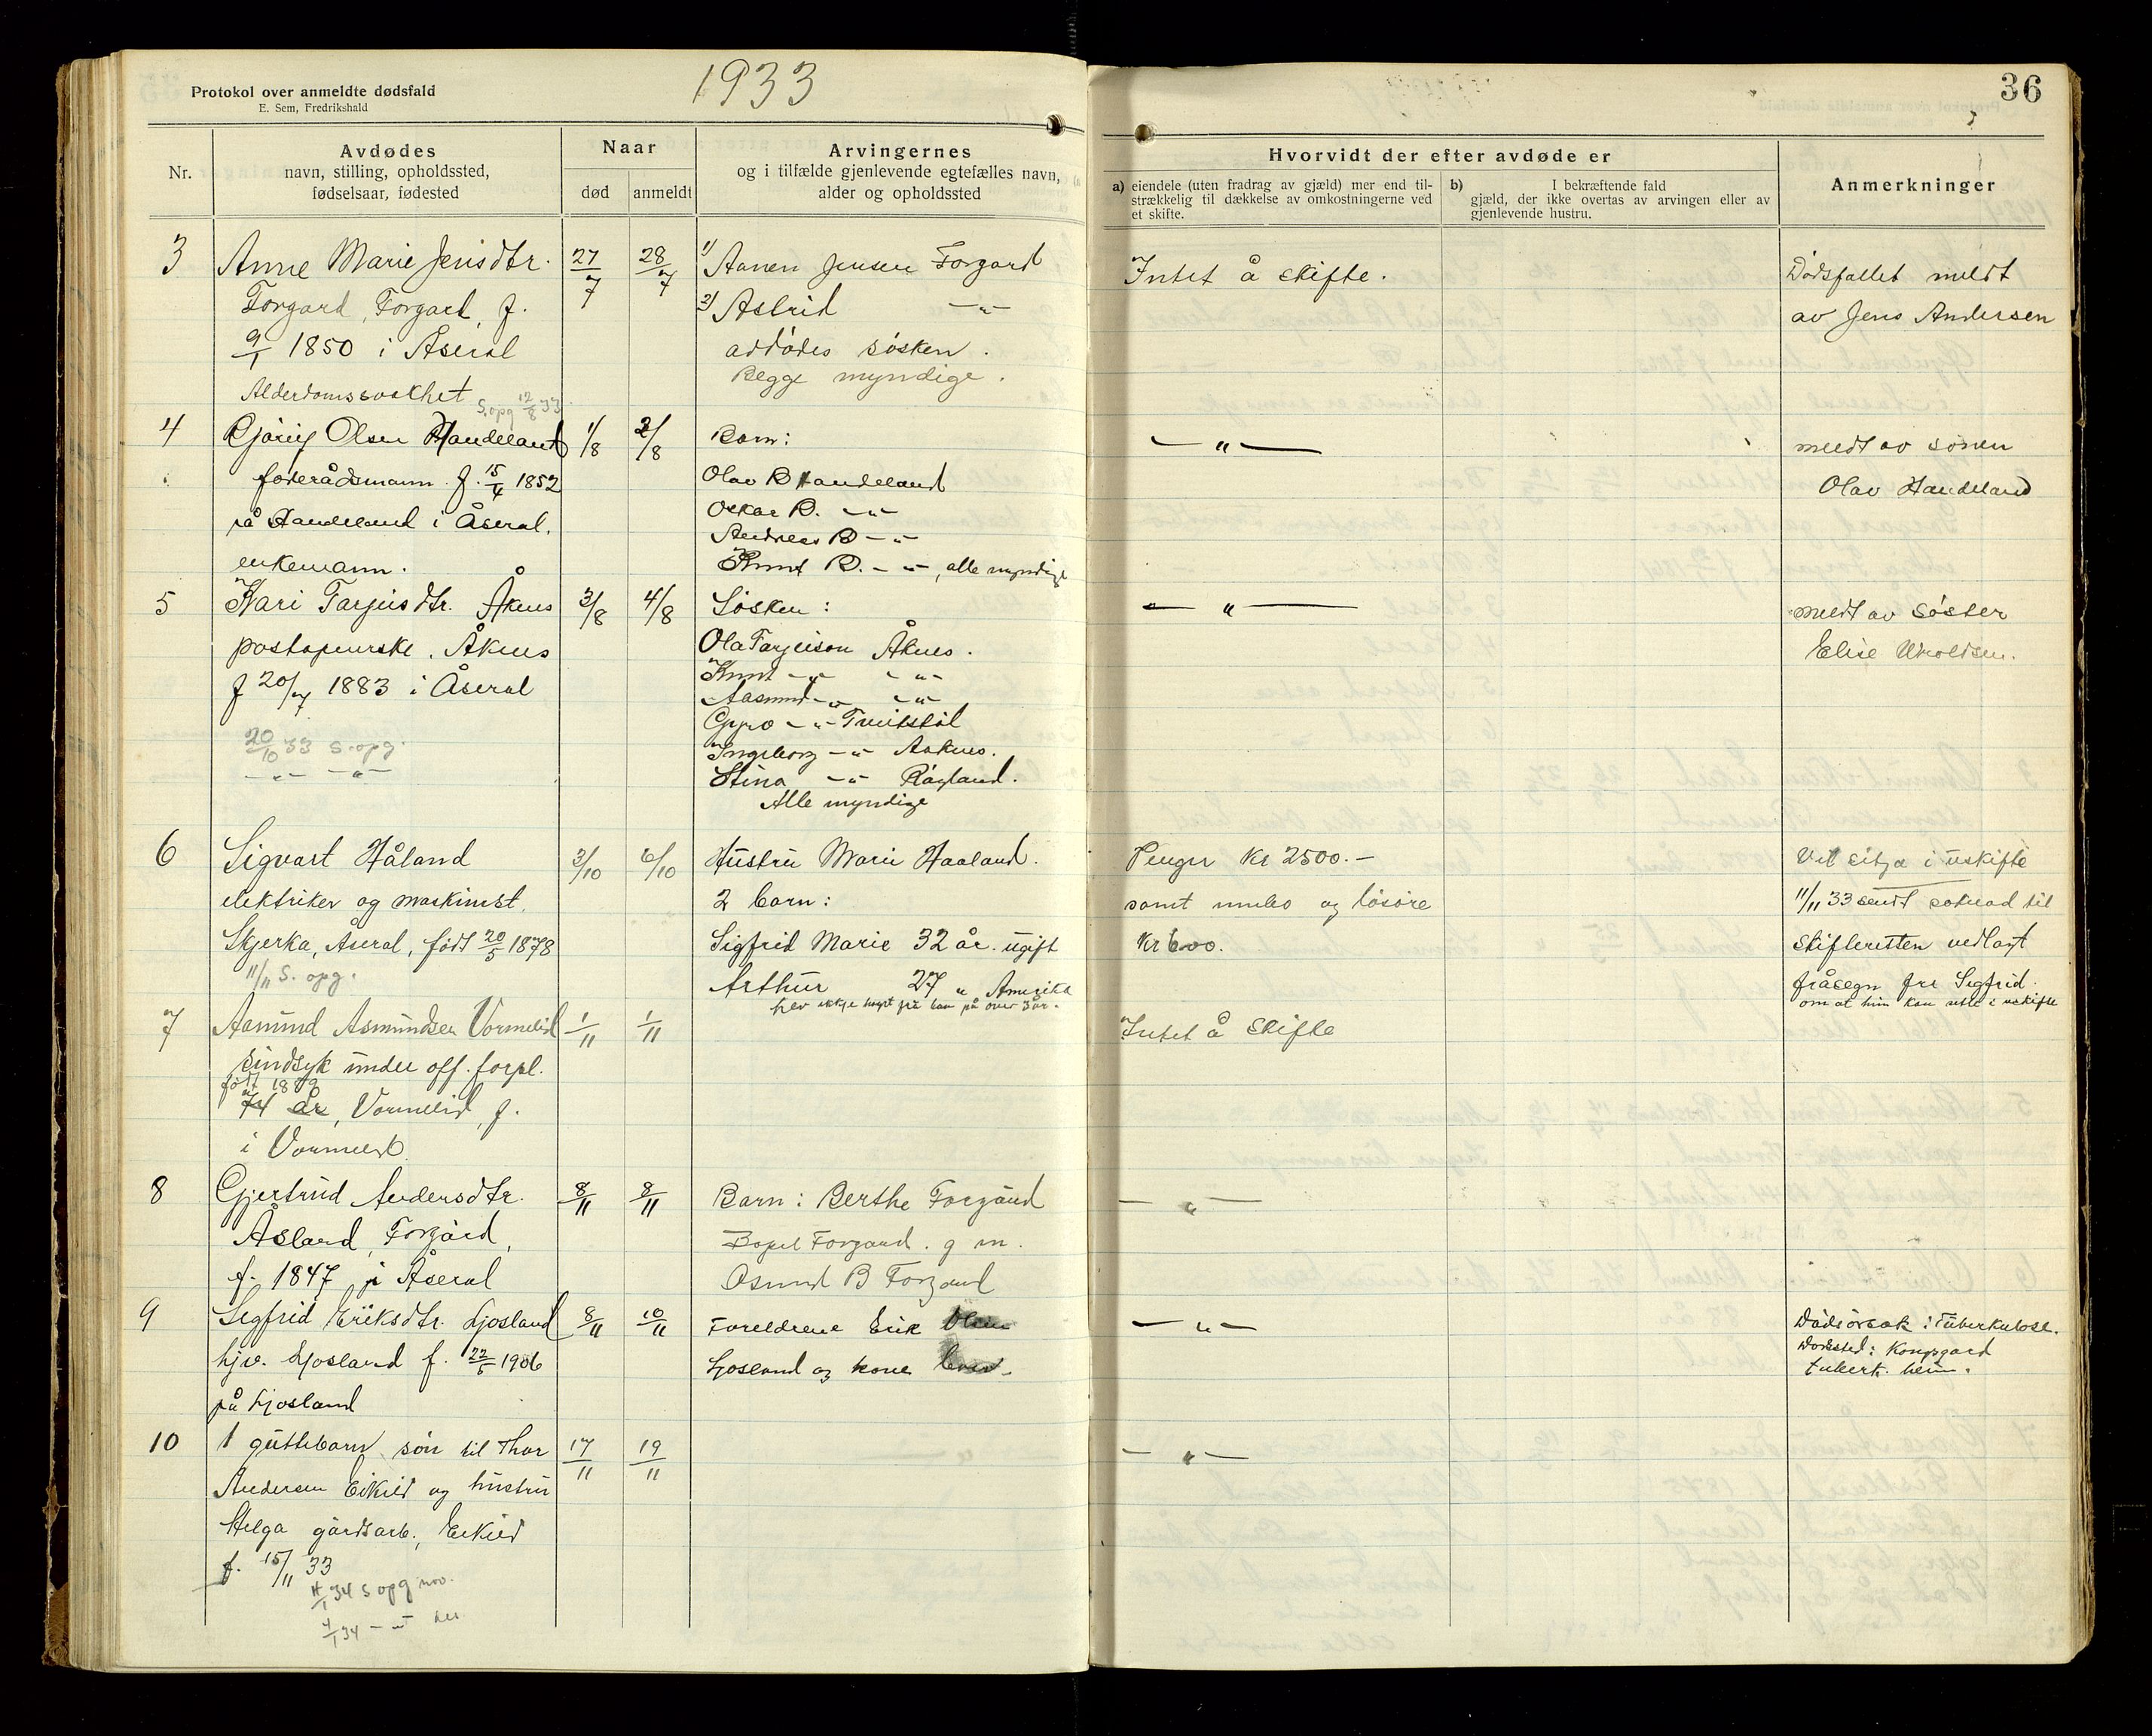 Protokol over anmeldte dødsfald
E. Sem, Fredrikshald
1933
36
Nr.
Avdødes
navn, stilling, opholdssted,
fødselsaar, fødested
Naar
død
anmeldt
Arvingernes
og i tilfælde gjenlevende egtefælles navn,
alder og opholdssted
Hvorvidt der efter avdøde er
a) eiendele (uten fradrag av gjæld) mer end til-
strækkelig til dækkelse av omkostningerne ved
et skifte.
b) I bekræftende fald
gjæld, der ikke overtas av arvingen eller av
gjenlevende hustru.
Anmerkninger
3
Anne Marie Jensdtr.
Forgard, Forgard, f.
9/1 1850 i Åseral
Alderdomssvakhet
S.opg 12/8 33
27/7
28/7
1) Aanen Jensen Forgard
2) Astrid — " —
avdødes søsken.
Begge myndige.
Intet å skifte.
Dødsfallet meldt
av Jens Andersen
4
Olsen Handeland
føderådsmann. f. 15/4 1852
på Handeland i Åseral.
enkemann.
1/8
2/8
Barn:
Olav B Handeland
Oskar B. — " —
Andreas B — " —
Knut B. — " —, alle myndige
— " —
meldt av sønen
Olav Handeland
5
Kari Tarjeisdtr. Åknes
postopnerske. Åknes
f 20/7 1883 i Åseral
20/10 33 S.opg.
— " — — " —
3/8
4/8
Søsken:
Ola Tarjeison Åknes.
Knut — " — — " —
Aasmund — " — — " —
— " —
Ingeborg — " — Aaknes.
Stina — " —
Alle myndige
— " —
meldt av søster
Elise
6
Sigvart Håland
elektriker og maskinist.
Skjerka, Åseral, født 20/5 1878
11/11 S. opg.
3/10
6/10
Hustru Marie Haaland.
2 barn:
Sigfrid Marie 32 år. ugift
Arthur 27 " Amerika
hev ikkje høyrt frå han på over 3 år.
Penger Kr 2500.—
samt innbo og løsøre
Kr 600.
Vil sitja i uskifte
11/11 33 sendt søknad til
skifteretten vedlagt
fråsegn fra Sigfrid
om at hun kan sitte i uskifte
7
Aamund Asmundsen Vormelid
sindsyk under off. forpl.
født 1889
74 år, Vormelid, f.
i Vormelid
1/11
1/11
Intet å skifte
8
Gjertrud Andersdtr.
Åsland, Forgård,
f. 1847 i Åseral
8/11
8/11
Barn: Berthe Forgård
Forgaard. g m.
Osmund B Forgard
— " —
9
Sigfrid Eriksdtr. Ljosland
hjv. Ljosland f. 22/5 1906
på Ljosland
8/11
10/11
Foreldrene Erik Olsen
Ljosland og kone lever.
— " —
Dødsårsak: Tuberkulose.
Dødsted: Kongsgard
tuberk. heim.
10
1 guttebarn, søn til Thor
Andersen Eikild og hustru
Helga gårdsarb., Eikild
f. 15/11 33
4/1 34 S opg nov.
4/1 34 — " — des
17/11
19/11
— " —